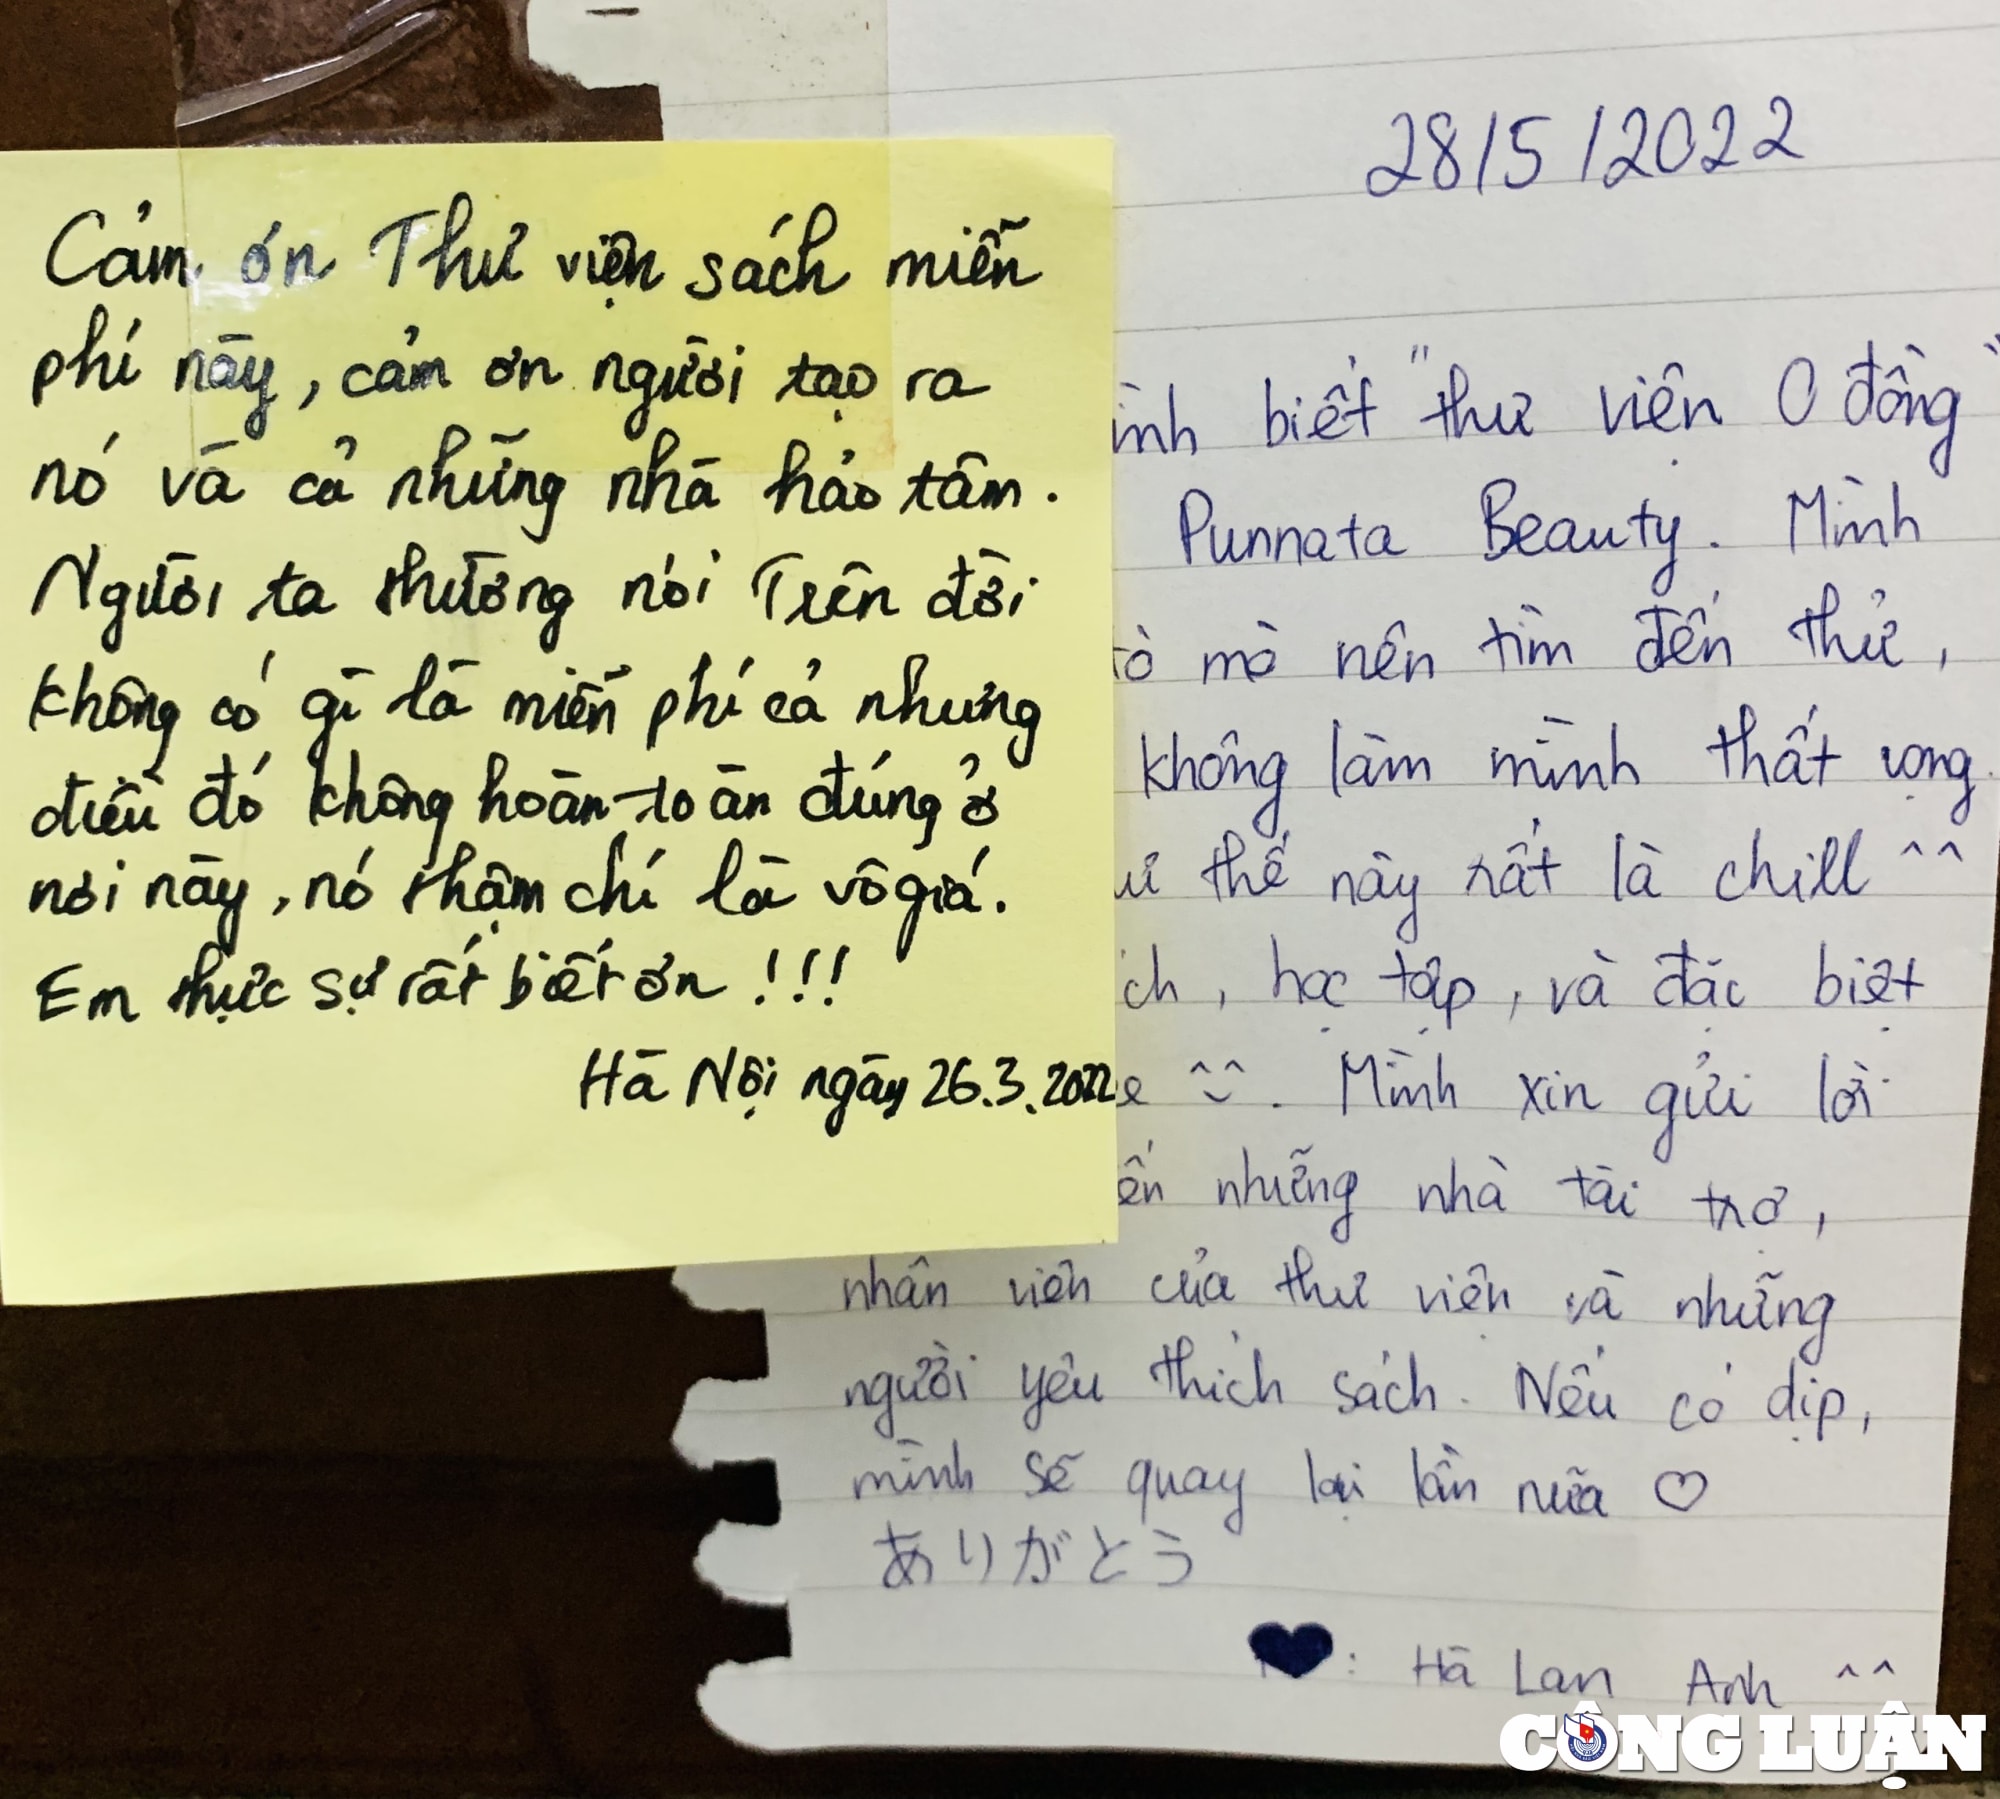 Cảm ơn Thư viện sách miễn
phí này, cảm ơn người tạo ra
nó và cả những nhà hảo tâm.
Người ta thường nói Trên đời
không có gì là miễn phí cả nhưng
điều đó không hoàn toàn đúng ở
nơi này, nó thậm chí là vô giá.
Em thực sự rất biết ơn !!!
Hà Nội ngày 26.3.2022
28/5/2022
biết "thư viện 0 đồng"
Punnata Beauty. Mình
mò nên tìm đến thử,
không làm mình thất vọng.
thế này rất là chill ^^
, học tập, và đặc biệt
^^. Mình xin gửi lời
những nhà tài trợ,
nhân viên của thư viện và những
người yêu thích sách. Nếu có dịp,
mình sẽ quay lại lần nữa ♡
ありがとう
♥: Hà Lan Anh ^^
CÔNG LUẬN